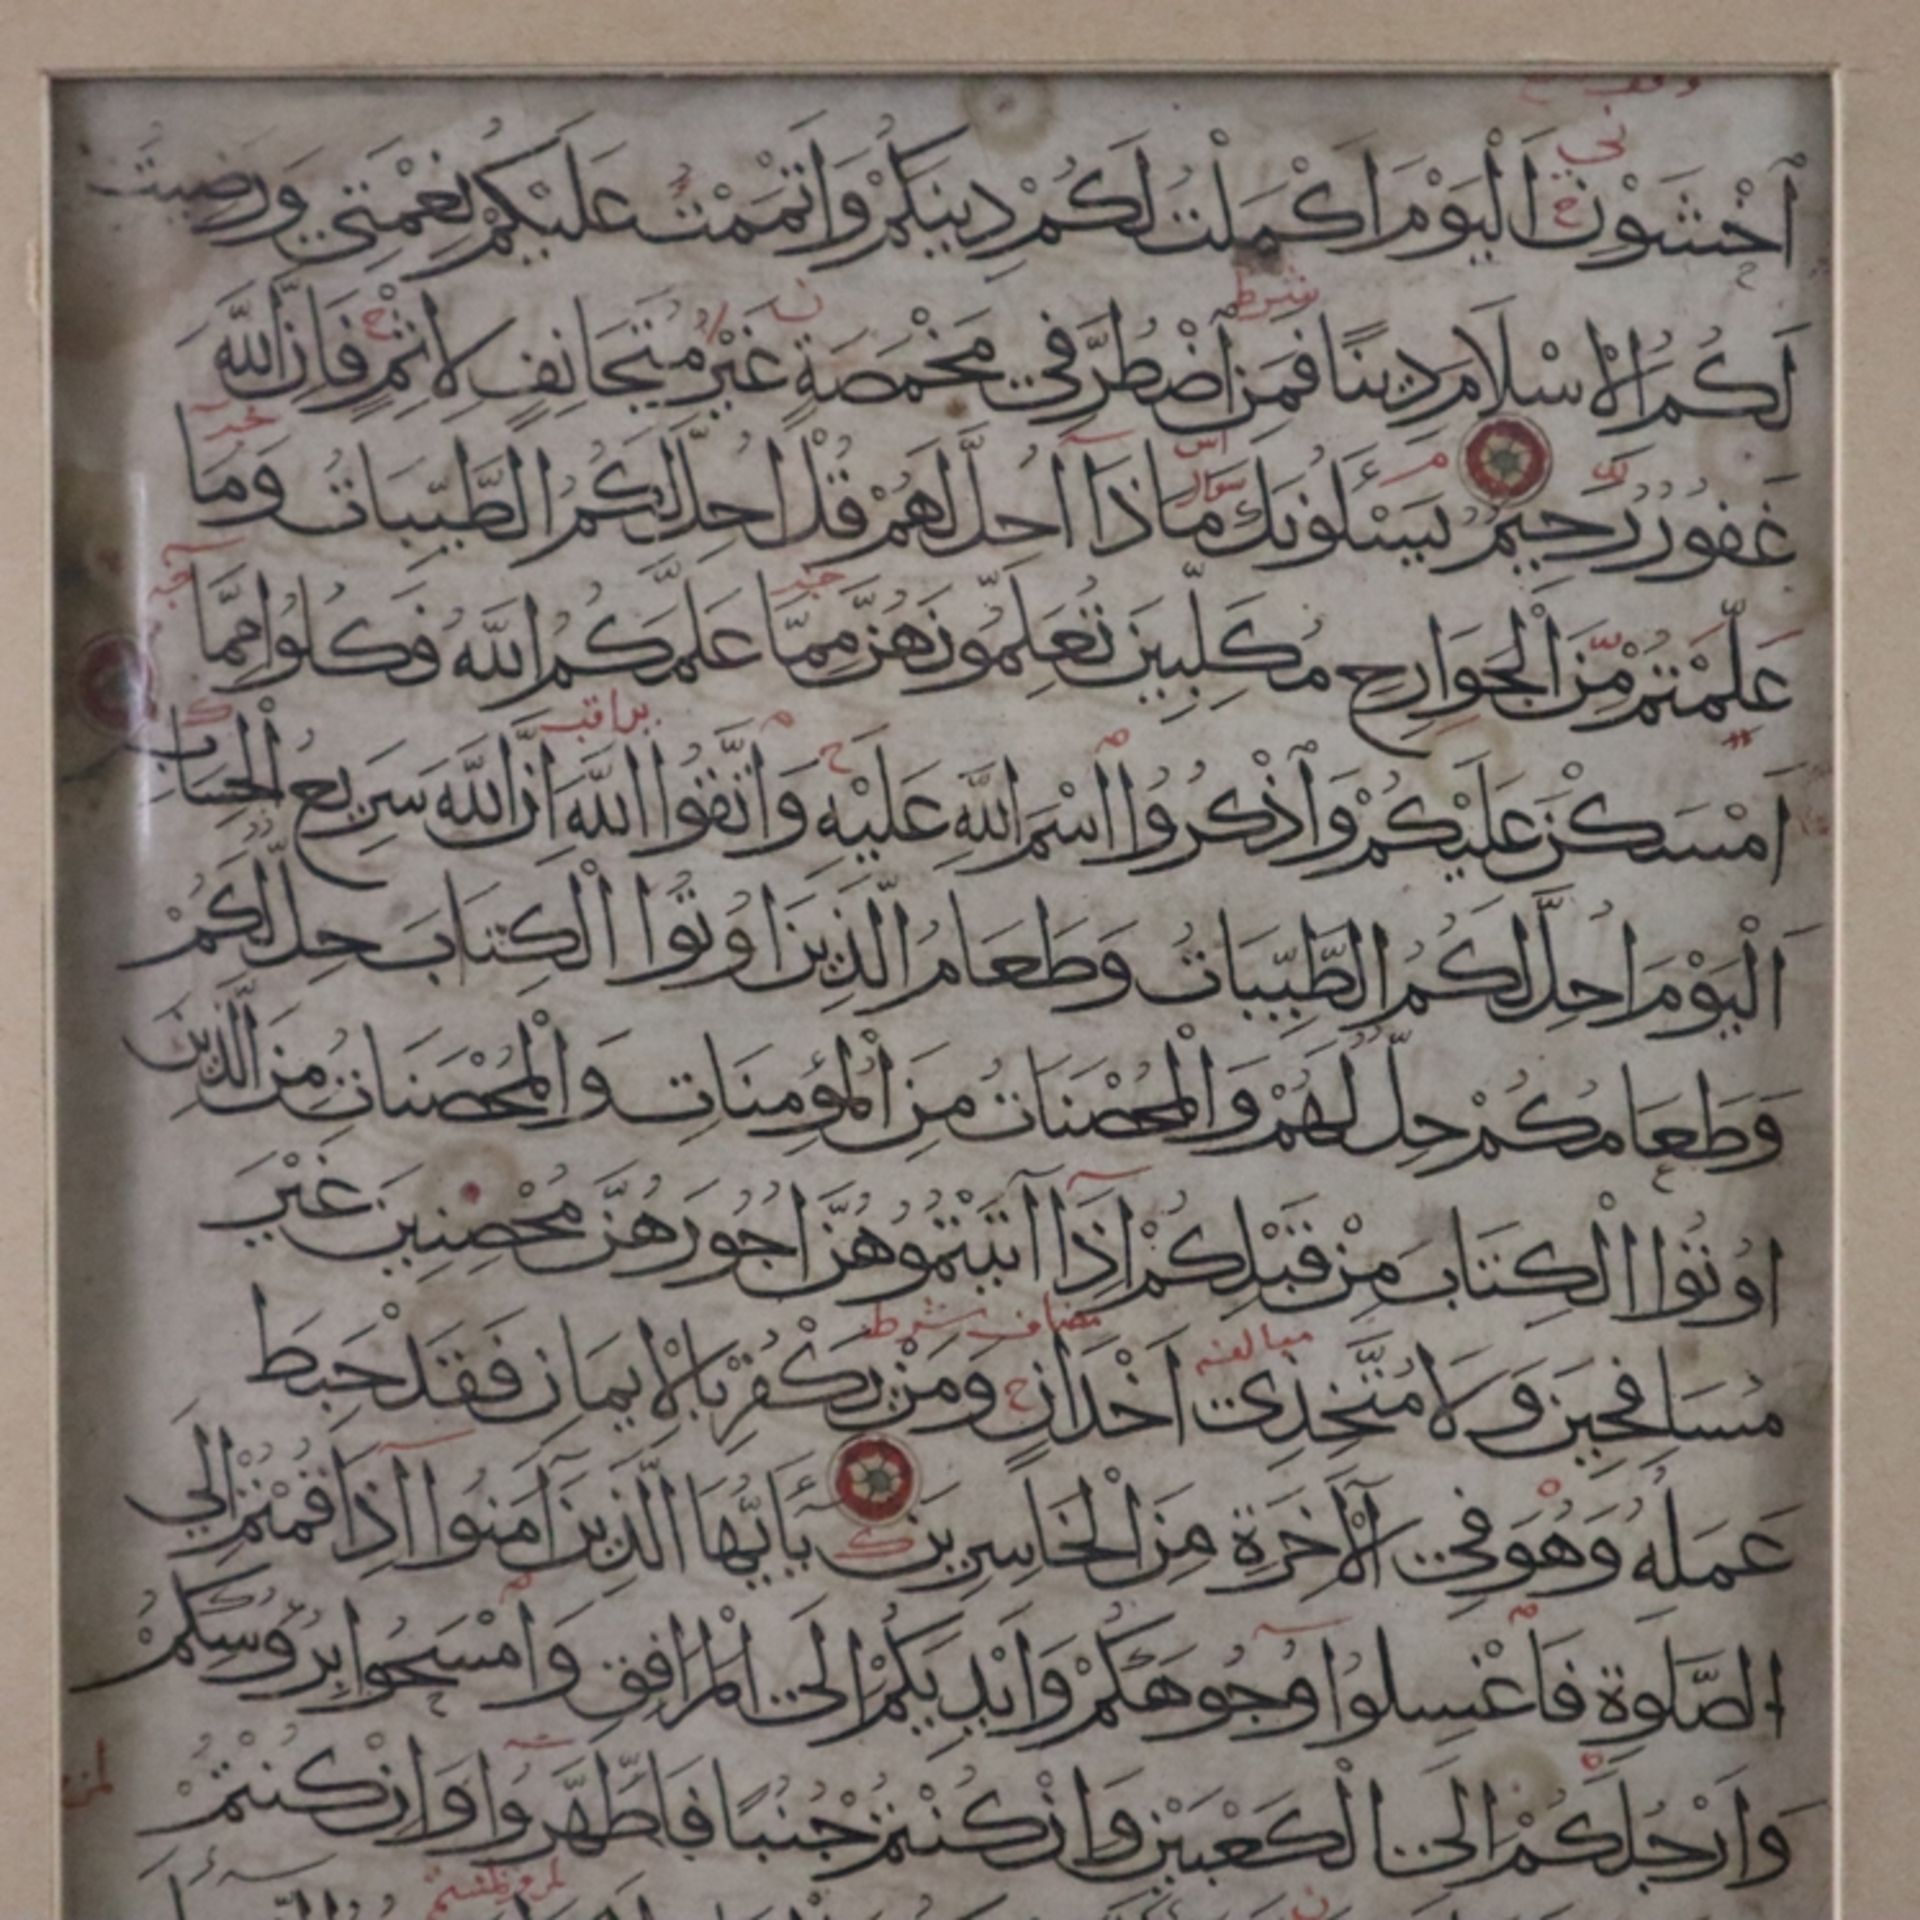 اَخْشَوْنِ اَلْيَوْمَ اَكْمَلْتُ لَكُمْ دِينَكُمْ وَاَتْمَمْتُ عَلَيْكُمْ نِعْمَتِي وَرَضِيتُ
لَكُمُ الْاِسْلَامَ دِينًا فَمَنِ اضْطُرَّ فِي مَخْمَصَةٍ غَيْرَ مُتَجَانِفٍ لِاِثْمٍ فَاِنَّ اللَّهَ
غَفُورٌ رَحِيمٌ يَسْـَٔلُونَكَ مَاذَآ اُحِلَّ لَهُمْ قُلْ اُحِلَّ لَكُمُ الطَّيِّبَاتُ وَمَا
عَلَّمْتُمْ مِنَ الْجَوَارِحِ مُكَلِّبِينَ تُعَلِّمُونَهُنَّ مِمَّا عَلَّمَكُمُ اللَّهُ فَكُلُوا مِمَّآ
اَمْسَكْنَ عَلَيْكُمْ وَاذْكُرُوا اسْمَ اللَّهِ عَلَيْهِ وَاتَّقُوا اللَّهَ اِنَّ اللَّهَ سَرِيعُ الْحِسَابِ
اَلْيَوْمَ اُحِلَّ لَكُمُ الطَّيِّبَاتُ وَطَعَامُ الَّذِينَ اُوتُوا الْكِتَابَ حِلٌّ لَكُمْ
وَطَعَامُكُمْ حِلٌّ لَهُمْ وَالْمُحْصَنَاتُ مِنَ الْمُؤْمِنَاتِ وَالْمُحْصَنَاتُ مِنَ الَّذِينَ
اُوتُوا الْكِتَابَ مِنْ قَبْلِكُمْ اِذَآ اٰتَيْتُمُوهُنَّ اُجُورَهُنَّ مُحْصِنِينَ غَيْرَ
مُسَافِحِينَ وَلَا مُتَّخِذِي اَخْدَانٍ وَمَنْ يَكْفُرْ بِالْاِيمَانِ فَقَدْ حَبِطَ
عَمَلُهُ وَهُوَ فِي الْاٰخِرَةِ مِنَ الْخَاسِرِينَ يَٓاَيُّهَا الَّذِينَ اٰمَنُوا اِذَا قُمْتُمْ اِلَى
الصَّلٰوةِ فَاغْسِلُوا وُجُوهَكُمْ وَاَيْدِيَكُمْ اِلَى الْمَرَافِقِ وَامْسَحُوا بِرُؤُسِكُمْ
وَاَرْجُلَكُمْ اِلَى الْكَعْبَيْنِ وَاِنْ كُنْتُمْ جُنُبًا فَاطَّهَّرُوا وَاِنْ كُنْتُمْ